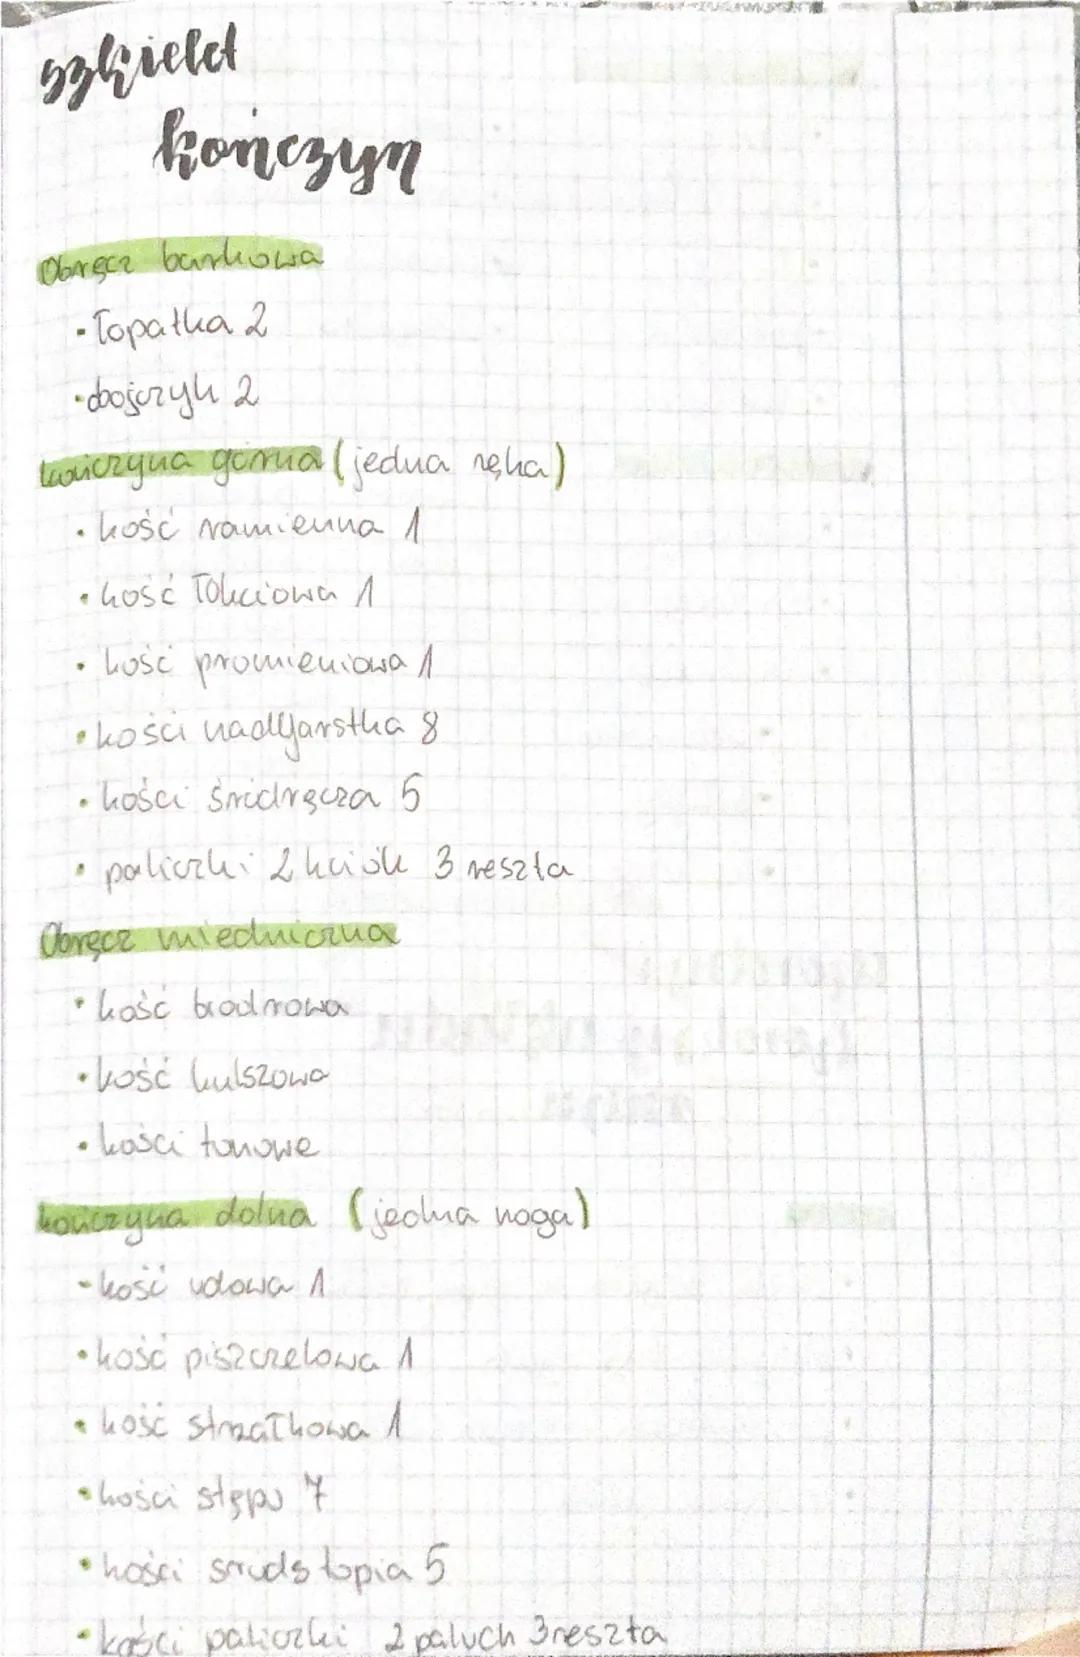 szkielet
kończyn
Obręcz barkowa
• Łopatka 2
• obojczyk 2
kończyna górna (jedna ręka)
• kość ramienna 1
• kość łokciowa 1
• kość promieniowa 1
• kości nadgarstka 8
• kości śródręcza 5
• paliczki 2 kciuk 3 reszta
Obręcz miedniczna
• kość biodrowa
• kość kulszowa
• kości łonowe
kończyna dolna (jedna noga)
• kość udowa 1
• kość piszczelowa 1
• kość strzałkowa 1
• kości stępu 7
• kości śródstopia 5
• kości paliczki 2 paluch 3 reszta